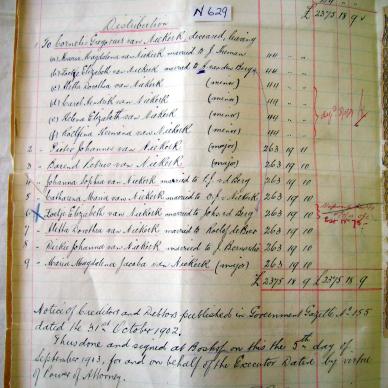 N 629
£ 2375 18 9
Distribution
1 To Cornelis Gregorius van Niekerk, deceased, leaving
(a) Maria Magdalena van Niekerk married to J. Human
(b) Elizabeth van Niekerk married to J. van den Berg
(c) Aletta Dorothea van Niekerk (minor)
(d) Carel Hendrik van Niekerk (minor)
(e) Helena Elizabeth van Niekerk (minor)
(f) Hermina van Niekerk (minor)
2 - Pieter Johannes van Niekerk (major) 263 19 10
3 - Barend Petrus van Niekerk (major) 263 19 11
4 - Johanna Sophia van Niekerk married to v.d. Berg 263 19 10
5 Catharina Maria van Niekerk married to v. Niekerk 263 19 10
6 Elizabeth van Niekerk married to Johs v.d. Berg 263 19 10
7 - Aletta Dorothea van Niekerk married to de Beer 263 19 10
8 - Johanna van Niekerk married to J. Bernardo 263 19 10
9 - Maria Magdalena Jacoba van Niekerk (major) 263 19 10
£ 2375 18 9 £ 2375 18 9
Notice of Creditors and Debtors published in Government Gazette No 155
dated the 31st October 1902.
Thus done and signed at Boshof on this the 5th day of
September 1913, for and on behalf of the Executor Dative by virtue
of Power of Attorney.